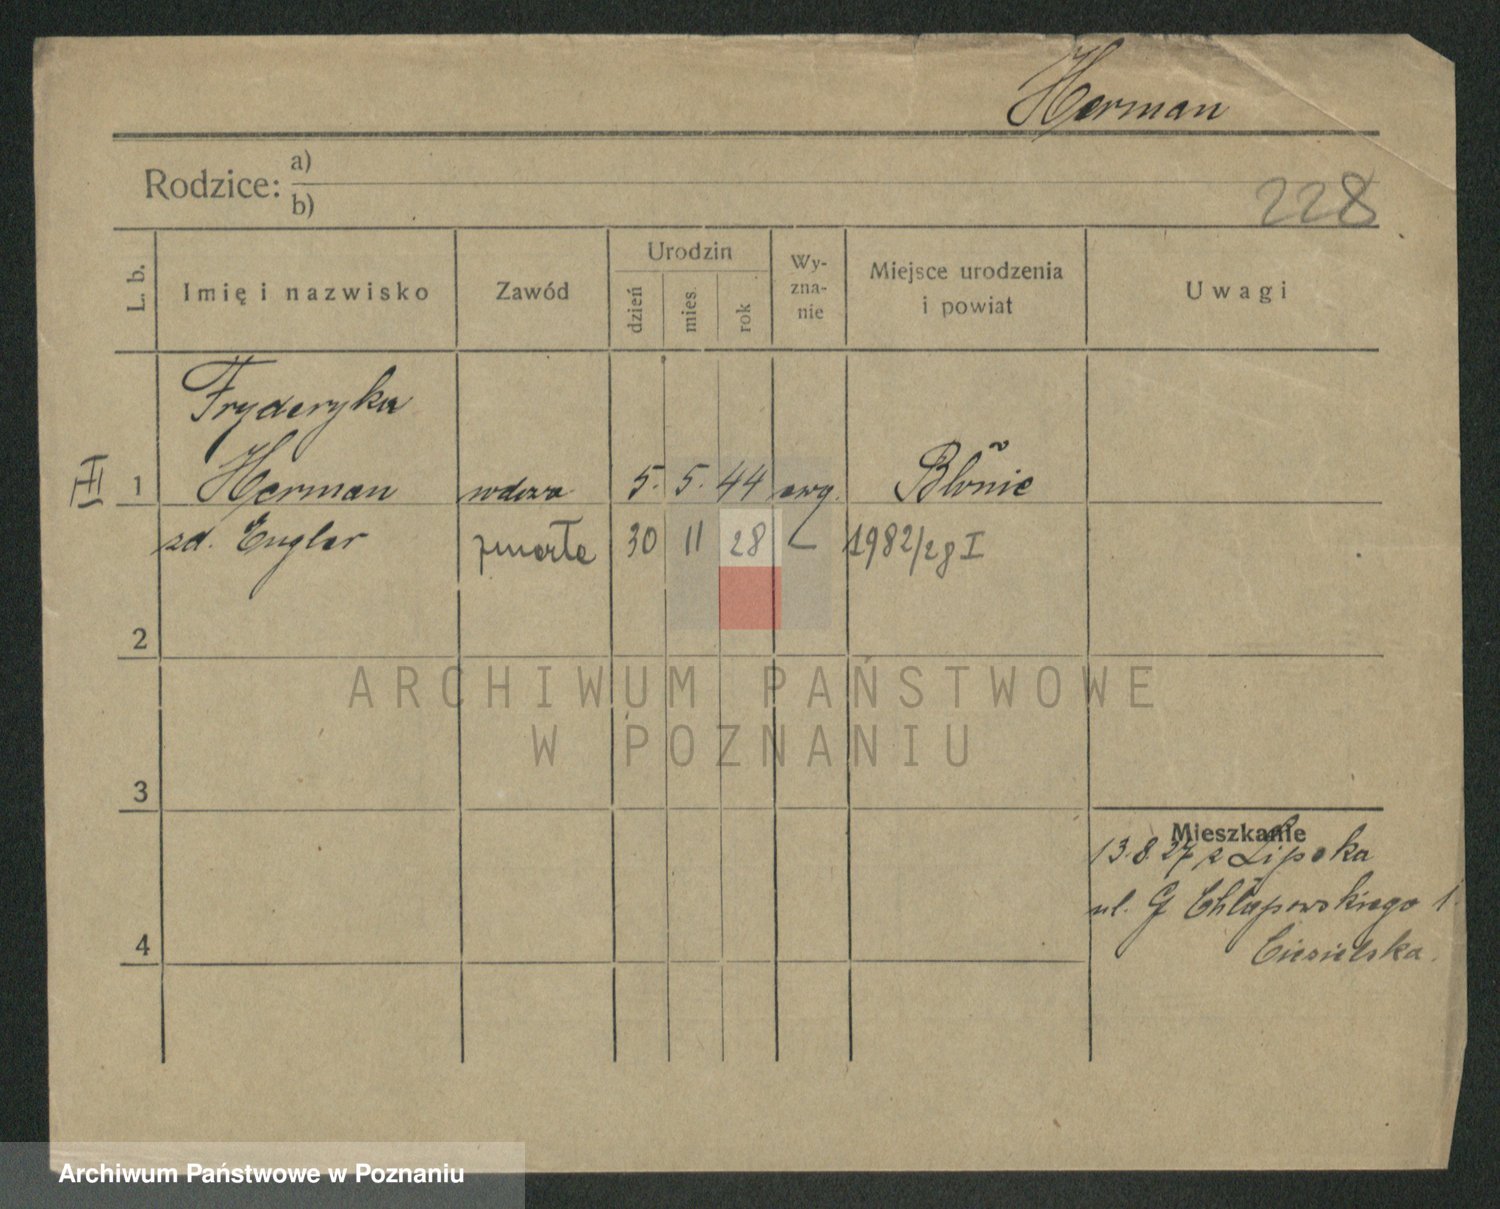 Herman
Rodzice: a)
b)
228
L. b.
Imię i nazwisko
Zawód
Urodzin
dzień
mies.
rok
Wy-
zna-
nie
Miejsce urodzenia
i powiat
Uwagi
Fryderyka
III 1 Herman wdowa 5. 5. 44 ewg. Błonie
zd. Engler zmarła 30 11 28 1982/28 I
2
ARCHIWUM PAŃSTWOWE
W POZNANIU
3
Mieszkanie
13.8.27 z Lipska
ul. G Chłapowskiego 1.
4
Ciesielska.
Archiwum Państwowe w Poznaniu